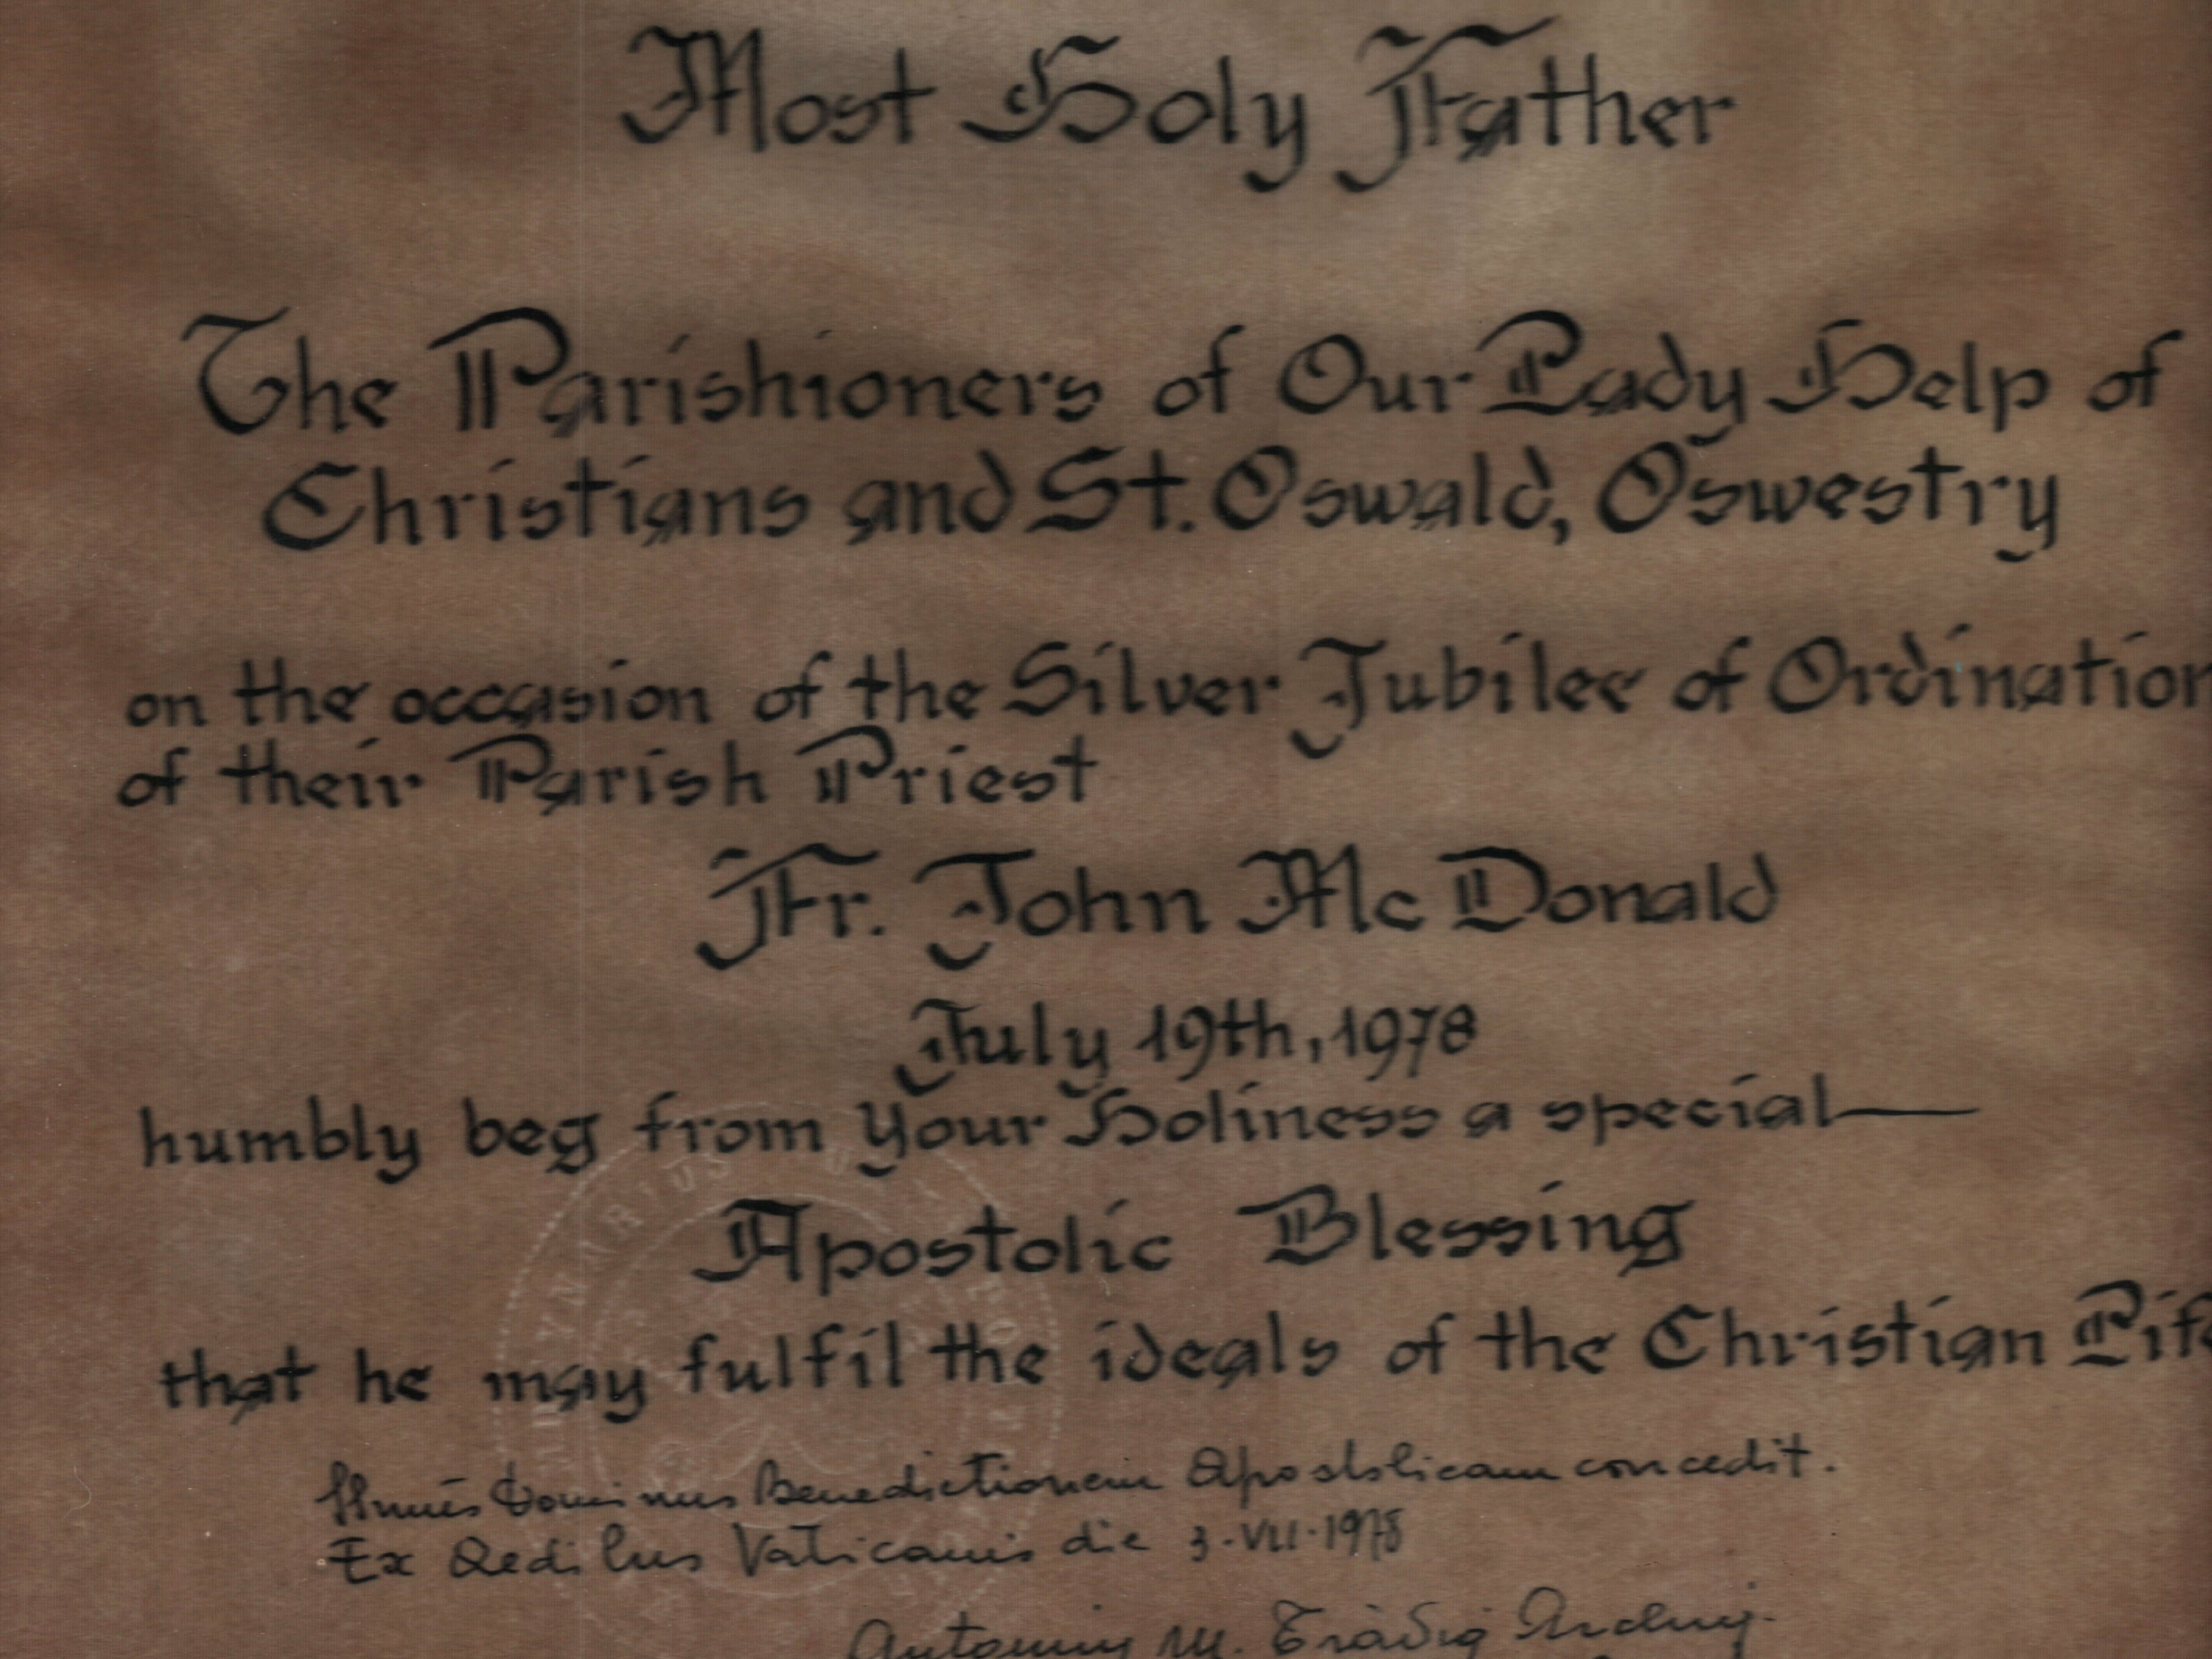 Most Holy Father
The Parishioners of Our Lady Help of
Christians and St. Oswald, Oswestry
on the occasion of the Silver Jubilee of Ordination
of their Parish Priest
Fr. John Mc Donald
July 19th, 1978
humbly beg from Your Holiness a special
Apostolic Blessing
that he may fulfil the ideals of the Christian Life
Dominus Benedictionem Apostolicam concedit.
Ex Aedibus Vaticanis die 3.VII.1978
M.